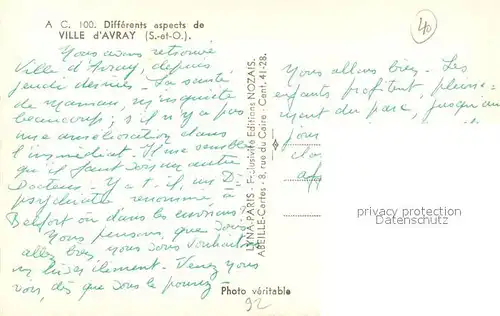 A C. 100. Différents aspects de
VILLE d'AVRAY (S.-et-O.).
40
Nous avons retrouvé
Ville d'Avray, depuis
jeudi dernier. La santé
de maman, m'inquiète
beaucoup; s'il n'y a pas
une amélioration dans
l'immédiat. Il me semble
qu'il faut un autre
Docteur. Y a-t-il, un Dr
psychiatre renommé à
Belfort ou dans les environs.
Nous pensons, que vous
allez bien, nous vous
Venez nous
voir, dès que vous le pouvez
LYNA-PARIS - Exclusivité Editions NOZAIS
ABEILLE-Cartes - 8, rue du Caire - Cent. 41-28.
Nous allons bien. Les
enfants profitent, pleine-
ment du parc, jusqu'au
jour
privacy protection
DELCAMPE.COM
Photo véritable
92